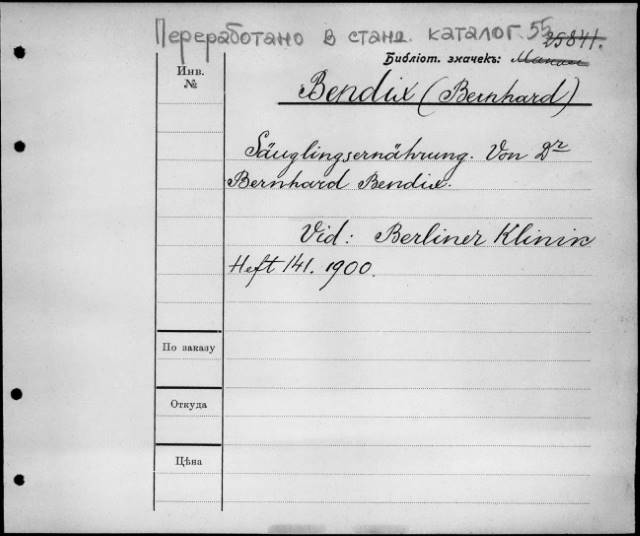 Переработано в станд. каталог. 55
25841.
Библіот. значекъ:
Инв.
№
Bendix (Bernhard)
Säuglingsernährung. Von Dr
Bernhard Bendix.
Vid: Berliner Klinik
Heft 141. 1900.
По заказу
Откуда
Цѣна